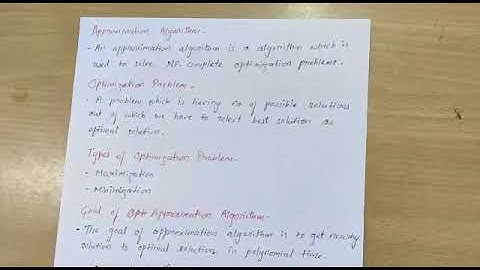 Approximation Algorithm -
- An approximation algorithm is a algorithm which is
used to solve NP-complete optimization problems.
Optimization Problem -
- A problem which is having no of possible solutions
out of which we have to select best solution as
optimal solution.
Types of Optimization Problem -
- Maximization
- Minimization
Goal of Approximation Algorithm -
- The goal of approximation algorithm is to get nearby
solution to optimal solution in polynomial time.